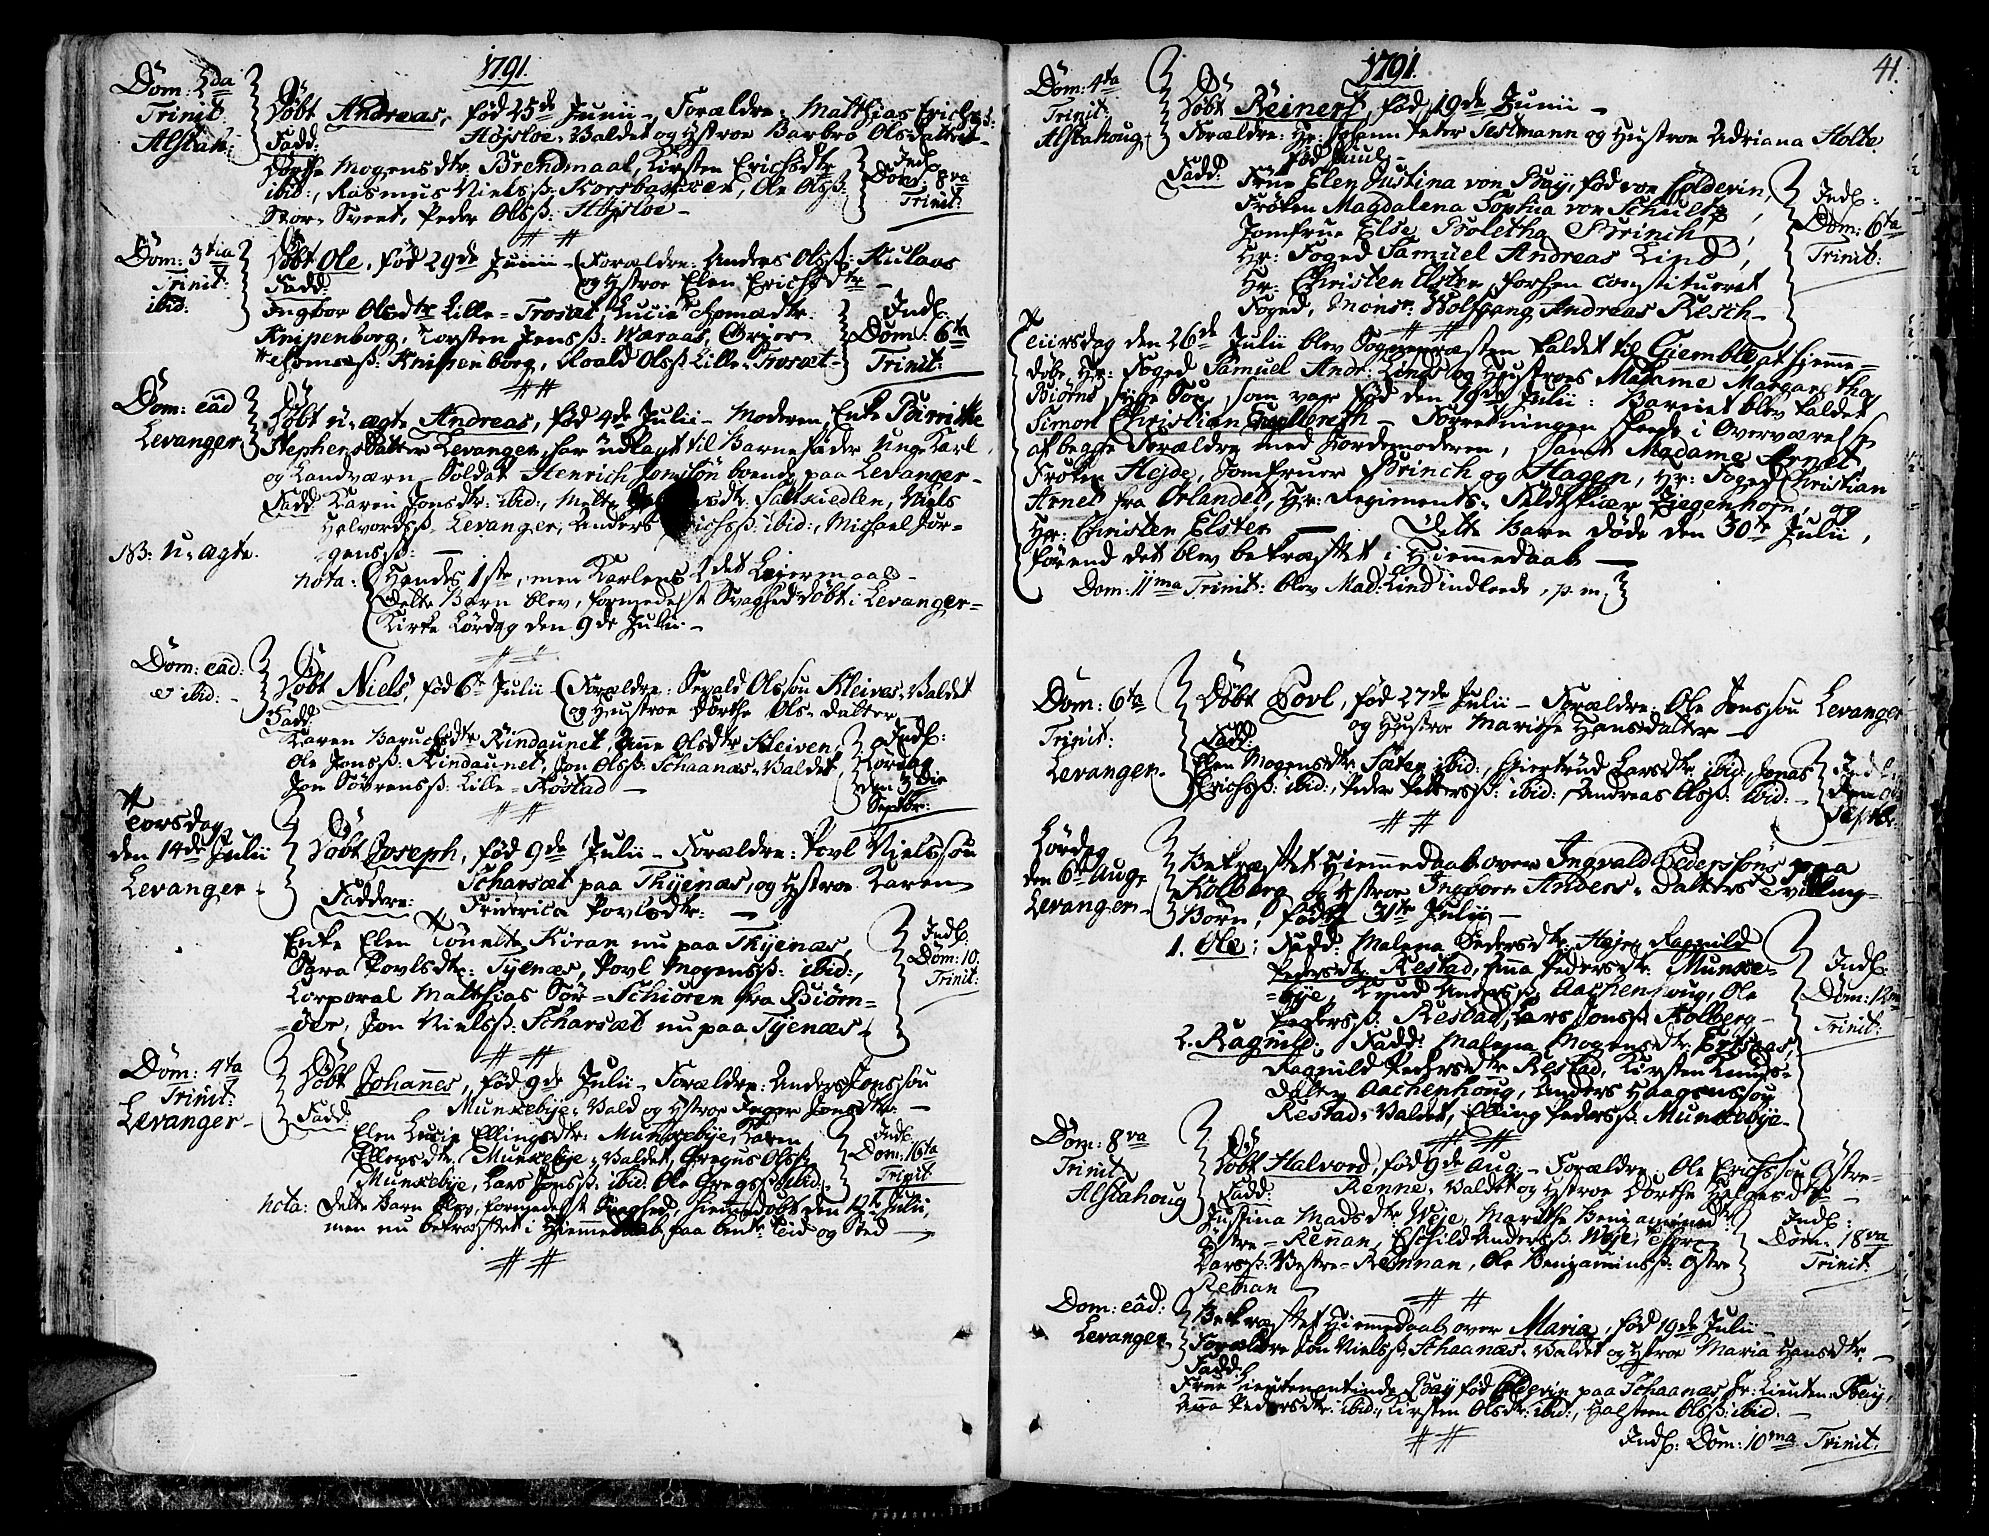 1791.
Dom: 5da
Trinit:
Alstah:
Döbt Andreas, fød 25de Junii – Forældre: Matthias Erichs:
Højsloe-Valdet og Hstroe Barbro Olsdatter –
Fadd:
Mogensdtr: Brendmaal, Kirsten Erichsdtr
ibid:, Rasmus Nielsß: Korsbakken, Ole Olsß:
Stor-Sveet, Peder Olsß: Højsloe –
Indl:
Dom: 8va
Trinit:
Dom: 3tia
Trinit:
ibid:
Döbt Ole, fød 29de Junii – Forældre: Anders Olsß: Aulaas
og Hstroe Elen Erichsdtr –
Fadd:
Ingbor Olsdtr Lille-Trosæt, Lucie Thomædtr:
Knipenborg, Torsten Jensß: Naraas,
Thomesß: Knipenborg, Roald Olsß: Lille-Trosæt –
Indl:
Dom: 6ta
Trinit:
Dom: eâd
Levanger
Döbt u-ægte Andreas, fød 4de Julii – Moderen, Enke Birrithe
Stephensdatter Levanger, har udlagt til Barnefader Unge Karl
og Landværn-Soldat Henrich Jonssön boende paa Levanger –
Fadd: Karen Jonsdtr: ibid:, Saltviedlen, Niels
Halvordsß: Levanger, Anders Erichsß: ibid:, Michael Jør-
gensß: –
NB: U-ægte.
nota: Hendes 1ste, men Karlens 2det Leiermaal –
Dette Barn blev, formedelst Svaghed döbt i Levanger-
Kirke Lørdag den 9de Julii –
Dom: eâd:
& ibid: –
Döbt Niels, fød 6te Julii – Forældre: Sevald Olssøn Kleivas-Valdet
og Hustroe Dorthe Ols-datter
Fadd:
Karen Baruchsdtr Rindaunet, Anne Olsdtr Kleiven,
Ole Jonsß: Rindaunet, Jon Olsß: Schaanæs-Valdet,
Jon Sörrensß: Lille-Röstad –
Indl:
Lørdag
den 3die
Septbr:
Torsdag
den 14de Julii
Levanger –
Döbt Joseph, fød 9de Julii – Forældre: Povl Nielssøn
Scharsæt paa Thyenæs, og Hstroe Karen
Friderica Povlsdtr: –
Faddere:
Enke Elen Kiran nu paa Thyenæs,
Sara Povlsdtr: Tyenæs, Povl Mogensß: ibid:,
Corporal Matthias Sör-Schiören fra Biörn-
öer, Jon Nielsß: Scharsæt nu paa Tyenæs –
Indl:
Dom: 10.
Trinit:
Dom: 4ta
Trinit:
Levanger –
Döbt Johannes, fød 9de Julii – Forældre: Anders Jonssøn
Munkebye-Vald og Hstroe Inger Jonsdtr: –
Fadd:
Elen Lucie Ellingsdtr: Munkebye, Karen
Ellevsdtr: Munkebye-Valdet, Gregus Olsß:
Munkebye, Lars Jonsß: ibid: Ole Gregsß: ibid:
Indl:
Dom: 16ta
Trinit
nota: Dette Barn blev, formedelst Svaghed, hiemedöbt den 12te Julii,
men nu bekræftet i Hiemmedaab paa bente Tid og Sted –
1791.
41.
Dom: 4ta
Trinit:
Alstahoug
Döbt Reinert, fød 19de Junii –
Forældre: Hr: Johann Peter Testmann og Hustroe Adriana Holte
Fadd: Frue Elen Justina von Bay, fød von Colderin,
Fröken Magdalena Sophia von Schultz,
Jomfrue Else Boletha Brinch,
Hr: Foged Samuel Andreas Lind,
Hr: Christen Elster forhen constitueret
Foged, Monsr: Wolfgang Andreas Resch –
Indl:
Dom: 6ta
Trinit:
Tiirsdag den 26de Julii blev Sognepræsten kaldet til Giemble, at hjemme-
döbe Hr: Foged Samuel Andr: Linds og Hustroes Madame Margaretha
Biörns syge Søn, som var fød den 19de Julii: Barnet blev kaldet
Simon Christian – Forretningen skede i Overværelse
af begge Forældre med Jordemoderen, samt Madame Arnet,
Fröken Hejde, Jomfruer Brinch og Hagen, Hr: Foged Christian
Arnet fra Örlandet, Hr: Regiments-Feldskiær Ziegenhorn, og
Hr: Christen Elster – Dette Barn døde den 30te Julii,
førend det blev bekræftet i Hiemmedaab –
Dom: 11ma Trinit: blev Mad: Lind indleede, p. m.
Dom: 6ta
Trinit:
Levanger –
Döbt Povl, fød 27de Julii – Forældre: Ole Jonssøn Levanger
og Hustroe Marithe Hansdatter –
Fadd:
Elen Mogensdtr: Sæter ibid:, Giertrud Larsdtr: ibid:, Jonas
Erichsß: ibid:, Peder Pettersß: ibid:, Andreas Olsß: ibid: –
Indl:
Septbr:
Lørdag
den 6te Aug:
Levanger –
Bekræftet Hiemmedaab over Ingvald Pederssøns paa
Kolberg og Hstroe Ingbor Anders-Datters Tvilling-
Börn, fød 31te Julii –
1. Ole: Fadd: Malena Pedersdtr: Høje, Ragnild
Pedersdtr: Restad, Anna Pedersdtr: Munke-
bye, Knud Andersß: Aachenhoug, Ole
Pedersß: Restad, Lars Jonsß: Kolberg –
2. Ragnild: Fadd: Malena Mogensdtr:
Ragnild Pedersdtr Restad, Kirsten Knuds-
datter Aachenhoug, Anders Haagenssøn
Restad-Valdet, Elling Pedersß: Munkebye –
Indl:
Dom: 12ma
Trinit:
Dom: 8va
Trinit:
Alstahoug
Döbt Halvord, fød 9de Aug: – Forældre: Ole Erichssøn Östre-
Renne-Valdet og Hstroe Dorthe Helgesdtr –
Fadd:
Justina Madsdtr Weje, Marithe Benjaminsdtr
Östre-Renan, Eschild Andersß: Weje,
Larsß: Vestre-Rennan, Ole Benjaminsß: Östre
Rennan
Indl:
Dom: 18va
Trinit:
Dom: eâd:
Levanger
Bekræftet Hiemmedaab over Maria, fød 19de Julii –
Forældre Jon Nielsß: Schaanæs-Valdet og Hstroe Maria Hansdtr: –
Fadd:
Frue Lieutenantinde Bay fød Colderin paa Schaanæs, Hr: Lieuten: Bay,
Anna Pedersdtr: ibid:, Kirsten Olsdtr: ibid:, Halsteen Olsß: ibid. –
Indl: Dom: 10ma Trinit: